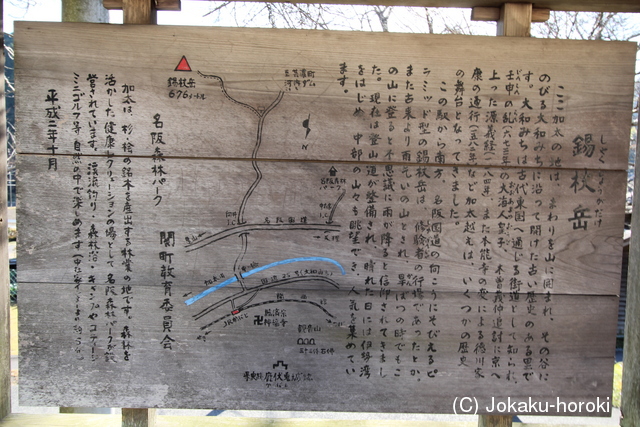 しゃくじょうがたけ
錫杖岳
ここ加太の地は、まわりを山に囲まれ、その谷に
のびる大和みちに沿って開けた古い歴史のある里で
す。大和みちは古代東国へ通じる街道として知られ、
壬申の乱(六七二年)の大海人皇子、木曽義仲追討に京へ
上った源義経(一一八四年)、また本能寺の変による徳川家
康の通行(一五八二年)など加太越えは、いくつかの歴史
の舞台となってきました。
この駅から南方、名阪国道の向こうにそびえるピ
ラミッド型の錫杖岳は、修験者の行場であったとか。
また古来より雨乞いの山とされ、旱ばつの時でもこ
の山に登ると不思議に雨が降ると信仰されてきまし
た。現在は登山道が整備され、晴れた日には伊勢湾
をはじめ、中部の山々も眺望でき、人気を集めてい
ます。
錫杖岳
676メートル
名阪国道
JRかぶと
神福寺
観音山
鹿伏兎城跡
名阪森林パーク
加太は、杉、桧の銘木を産出する林業の地です。森林を
活かした健康とレクリェーションの場として、名阪森林パークが設
営されています。渓流釣り、森林浴・キャンプやコテージ
ミニゴルフ等、自然の中で楽しめます
平成二年十月
関町教育委員会
(C) Jokaku-horoki